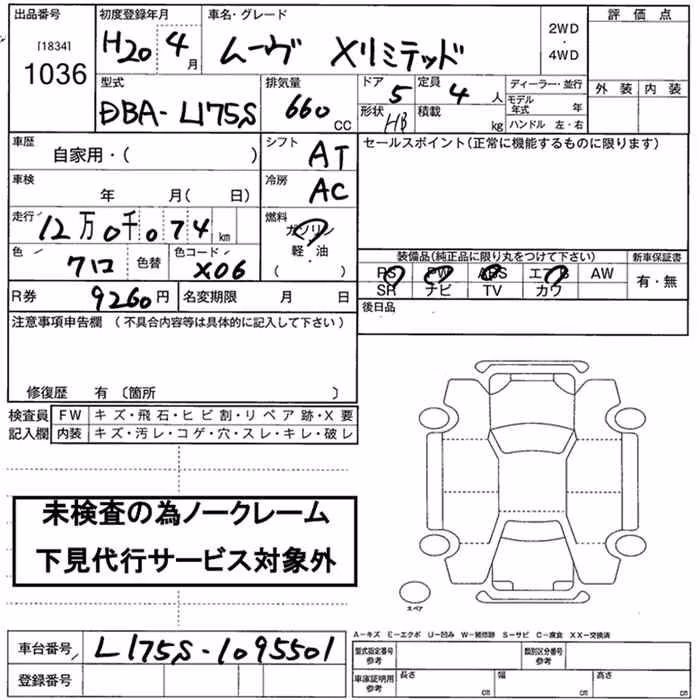 出品番号 初度登録年月 車名・グレード 評価点
[1834] H20 4月 ムーヴ Xリミテッド 2WD・4WD
1036 外装 内装
型式 排気量 ドア 定員 ディーラー・並行
DBA-L175S 660CC 5 4人 モデル年式 年
形状 HB 積載 kg ハンドル 左・右
車歴 自家用・( ) シフト AT セールスポイント(正常に機能するものに限ります)
車検 年 月( 日) 冷房 AC
走行 12万0千074km 燃料 ガソリン・軽・油( )
色 クロ 色替 色コード X06 装備品(純正品に限り丸をつけて下さい) 新車保証書
PS PW ABS エアB AW 有・無
R券 9260円 名変期限 月 日 SR ナビ TV カワ
注意事項申告欄(不具合内容等は具体的に記入して下さい) 後日品
修復歴 有〔箇所 〕
検査員 FW キズ・飛石・ヒビ割・リペア跡・X要
記入欄 内装 キズ・汚レ・コゲ・穴・スレ・キレ・破レ
未検査の為ノークレーム
下見代行サービス対象外
スペア
A-キズ E-エクボ U-凹み W-補修跡 S-サビ C-腐食 XX-交換済
車台番号 L175S-1095501 型式指定番号参考 類別区分番号参考
登録番号 車庫証明用参考 長さ cm 幅 cm 高さ cm